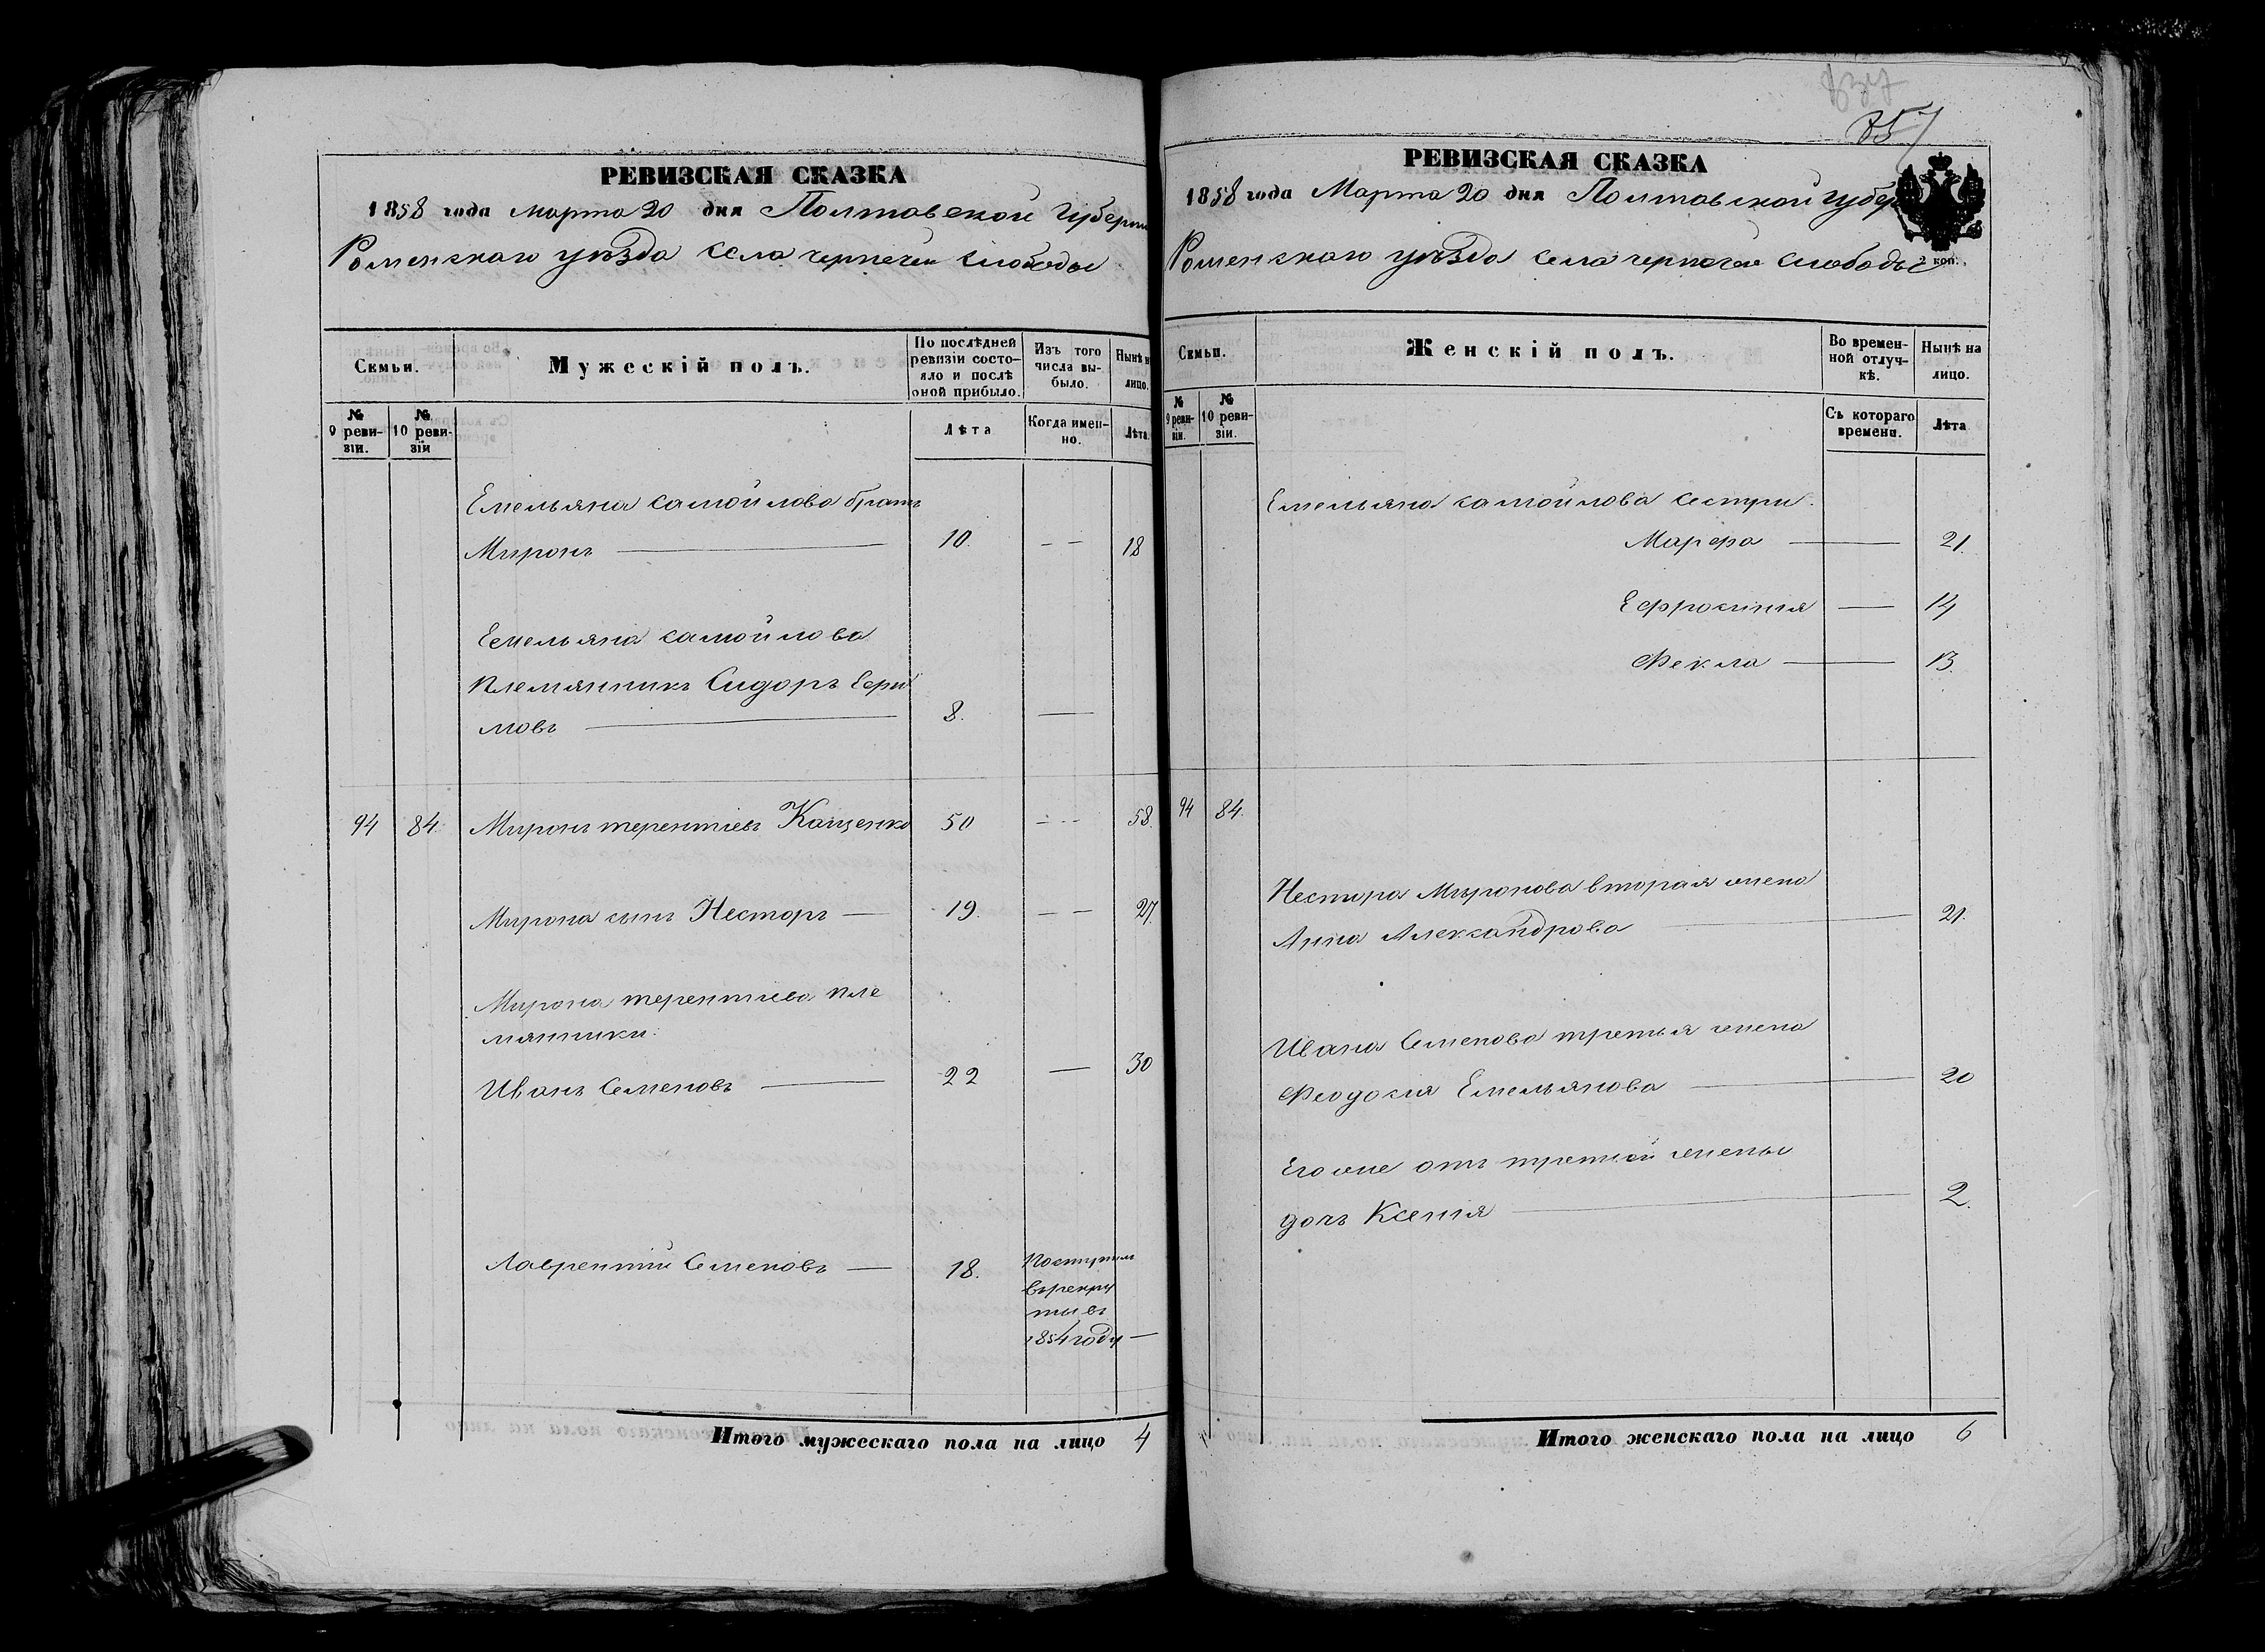 РЕВИЗСКАЯ СКАЗКА
1858 года Марта 20 дня Полтавской Губерни
Роменскаго уѣзда села чернечей слободы
Семьи.
Мужескій полъ.
По послѣдней ревизіи состояло и послѣ оной прибыло.
Изъ того числа выбыло.
Нынѣ на лицо.
№ 9 ревизіи.
№ 10 ревизіи
Лѣта
Когда именно.
Лѣта.
Емельяна самойлова братъ
Миронъ 10. 18
Емельяна самойлова
племянникъ Сидоръ Ефи
мовъ 8.
94 84. Миронъ терентіевъ Кащенко 50 58.
Мирона сынъ Несторъ 19. 27.
Мирона терентіева пле
мянники:
Иванъ Семеновъ 22 30
Лаврентій Семеновъ 18.
поступилъ
въ рекру
ты въ
1854 году
Итого мужескаго пола на лицо 4
857
РЕВИЗСКАЯ СКАЗКА
1858 года Марта 20 дня Полтавской губер
Роменскаго уѣзда села чернечей слободы
2 коп.
Семьи.
Женскій полъ.
Во временной отлучкѣ.
Нынѣ на лицо.
№ 9 ревизіи.
№ 10 ревизіи.
Съ котораго времени.
Лѣта
Емельяна самойлова сестри.
Марфа 21.
Ефросинія 14
Фекла 13.
94 84.
Нестора Миронова вторая жена
Анна Александрова 21.
Ивана Семенова третья жена
Феодосія Емельянова 20
Его же отъ третьей жены
дочь Ксенія 2.
Итого женскаго пола на лицо 6